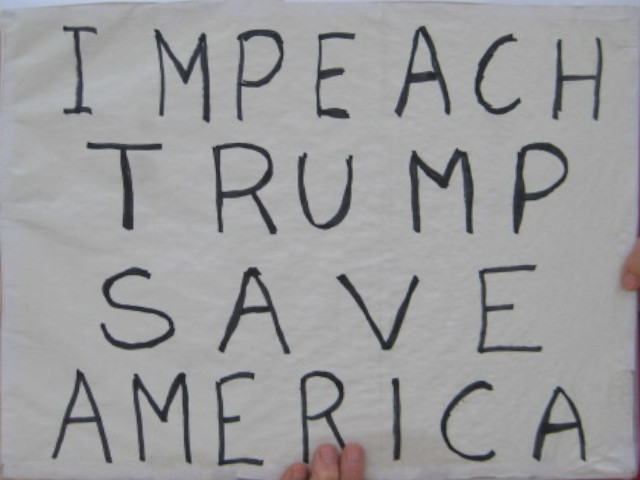 IMPEACH
TRUMP
SAVE
AMERICA